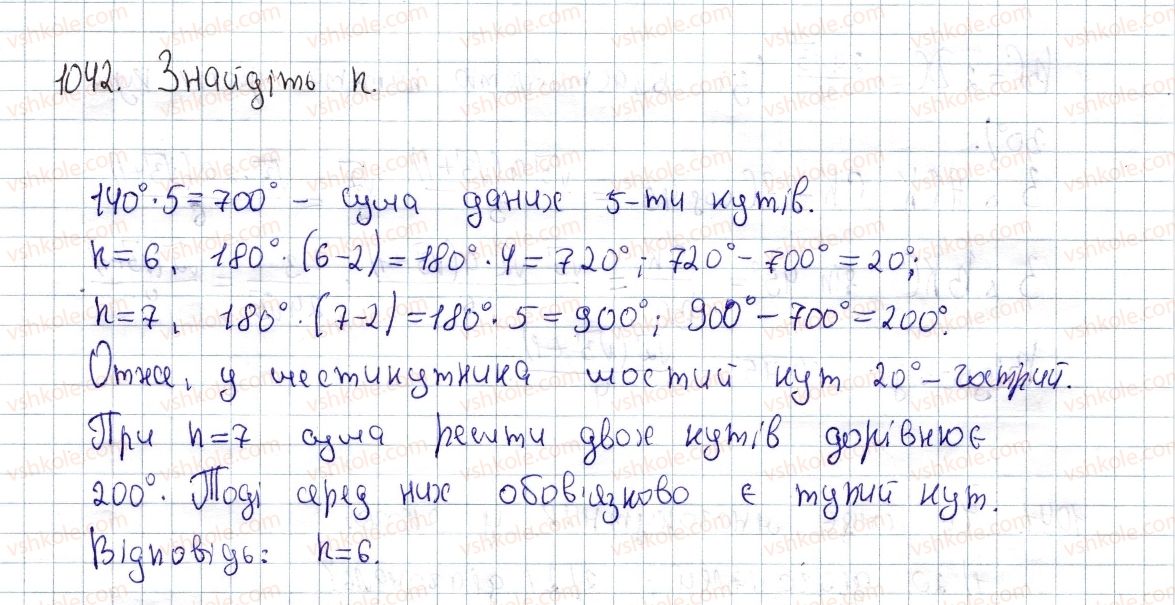 1042. Знайдіть n.
140°·5=700° – сума даних 5-ти кутів.
n=6, 180°·(6-2)=180°·4=720°; 720°-700°=20°;
n=7, 180°·(7-2)=180°·5=900°; 900°-700°=200°.
Отже, у шестикутника шостий кут 20° – гострий.
При n=7 сума решти двох кутів дорівнює
200°. Тоді серед них обов'язково є тупий кут.
Відповідь: n=6.